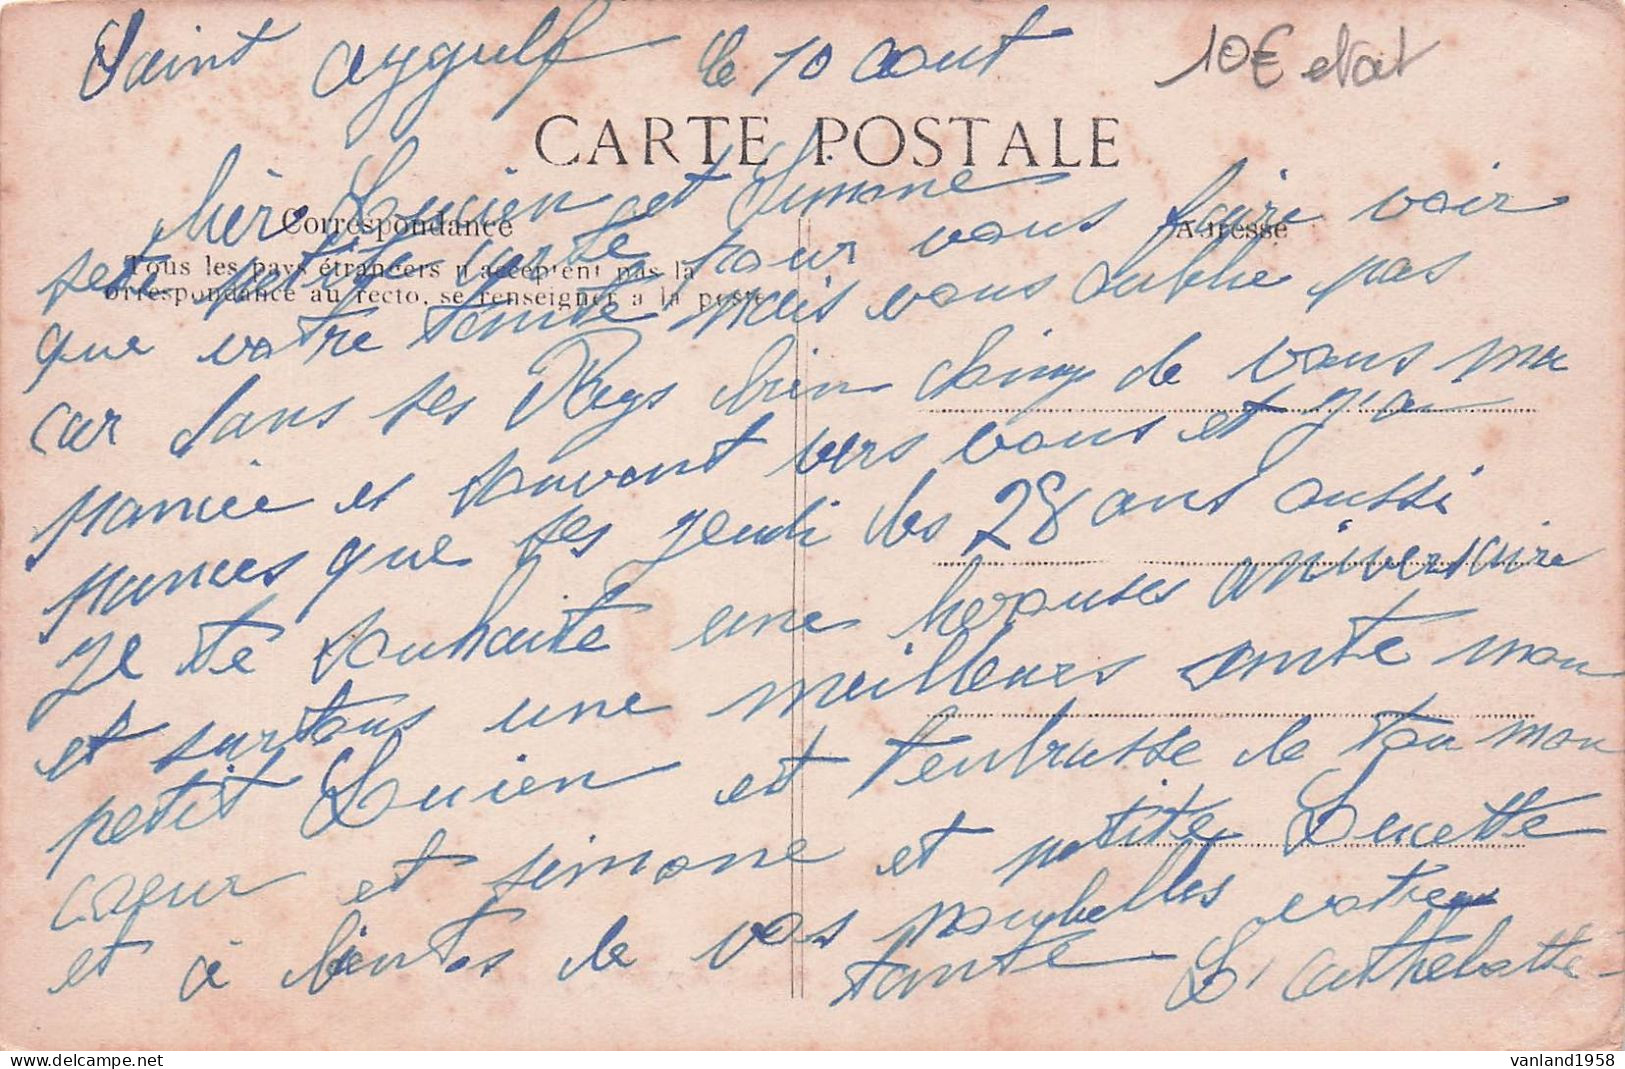 Saint aygulf le 10 aout
10€ etat
CARTE POSTALE
chèr Lucien et Simone
Correspondance
Adresse
Tous les pays étrangers n'acceptent pas la
correspondance au recto, se renseigner à la poste
set petite carte pour vous faire voir
que votre tante mais vous oublie pas
car dans ses Pays bien de vous ma
pancée et souvent vers vous et j'a
pances que ses jeudi les 28 ans aussi
je te souhaite une herouses aniversaire
et surtous une meilleurs sante mon
petit Lucien et t'enbrasse de tou mon
coeur et simone et petite Lucette
et à bientos de vos nouvelles votre
tante L. Cathelotte
vanland1958